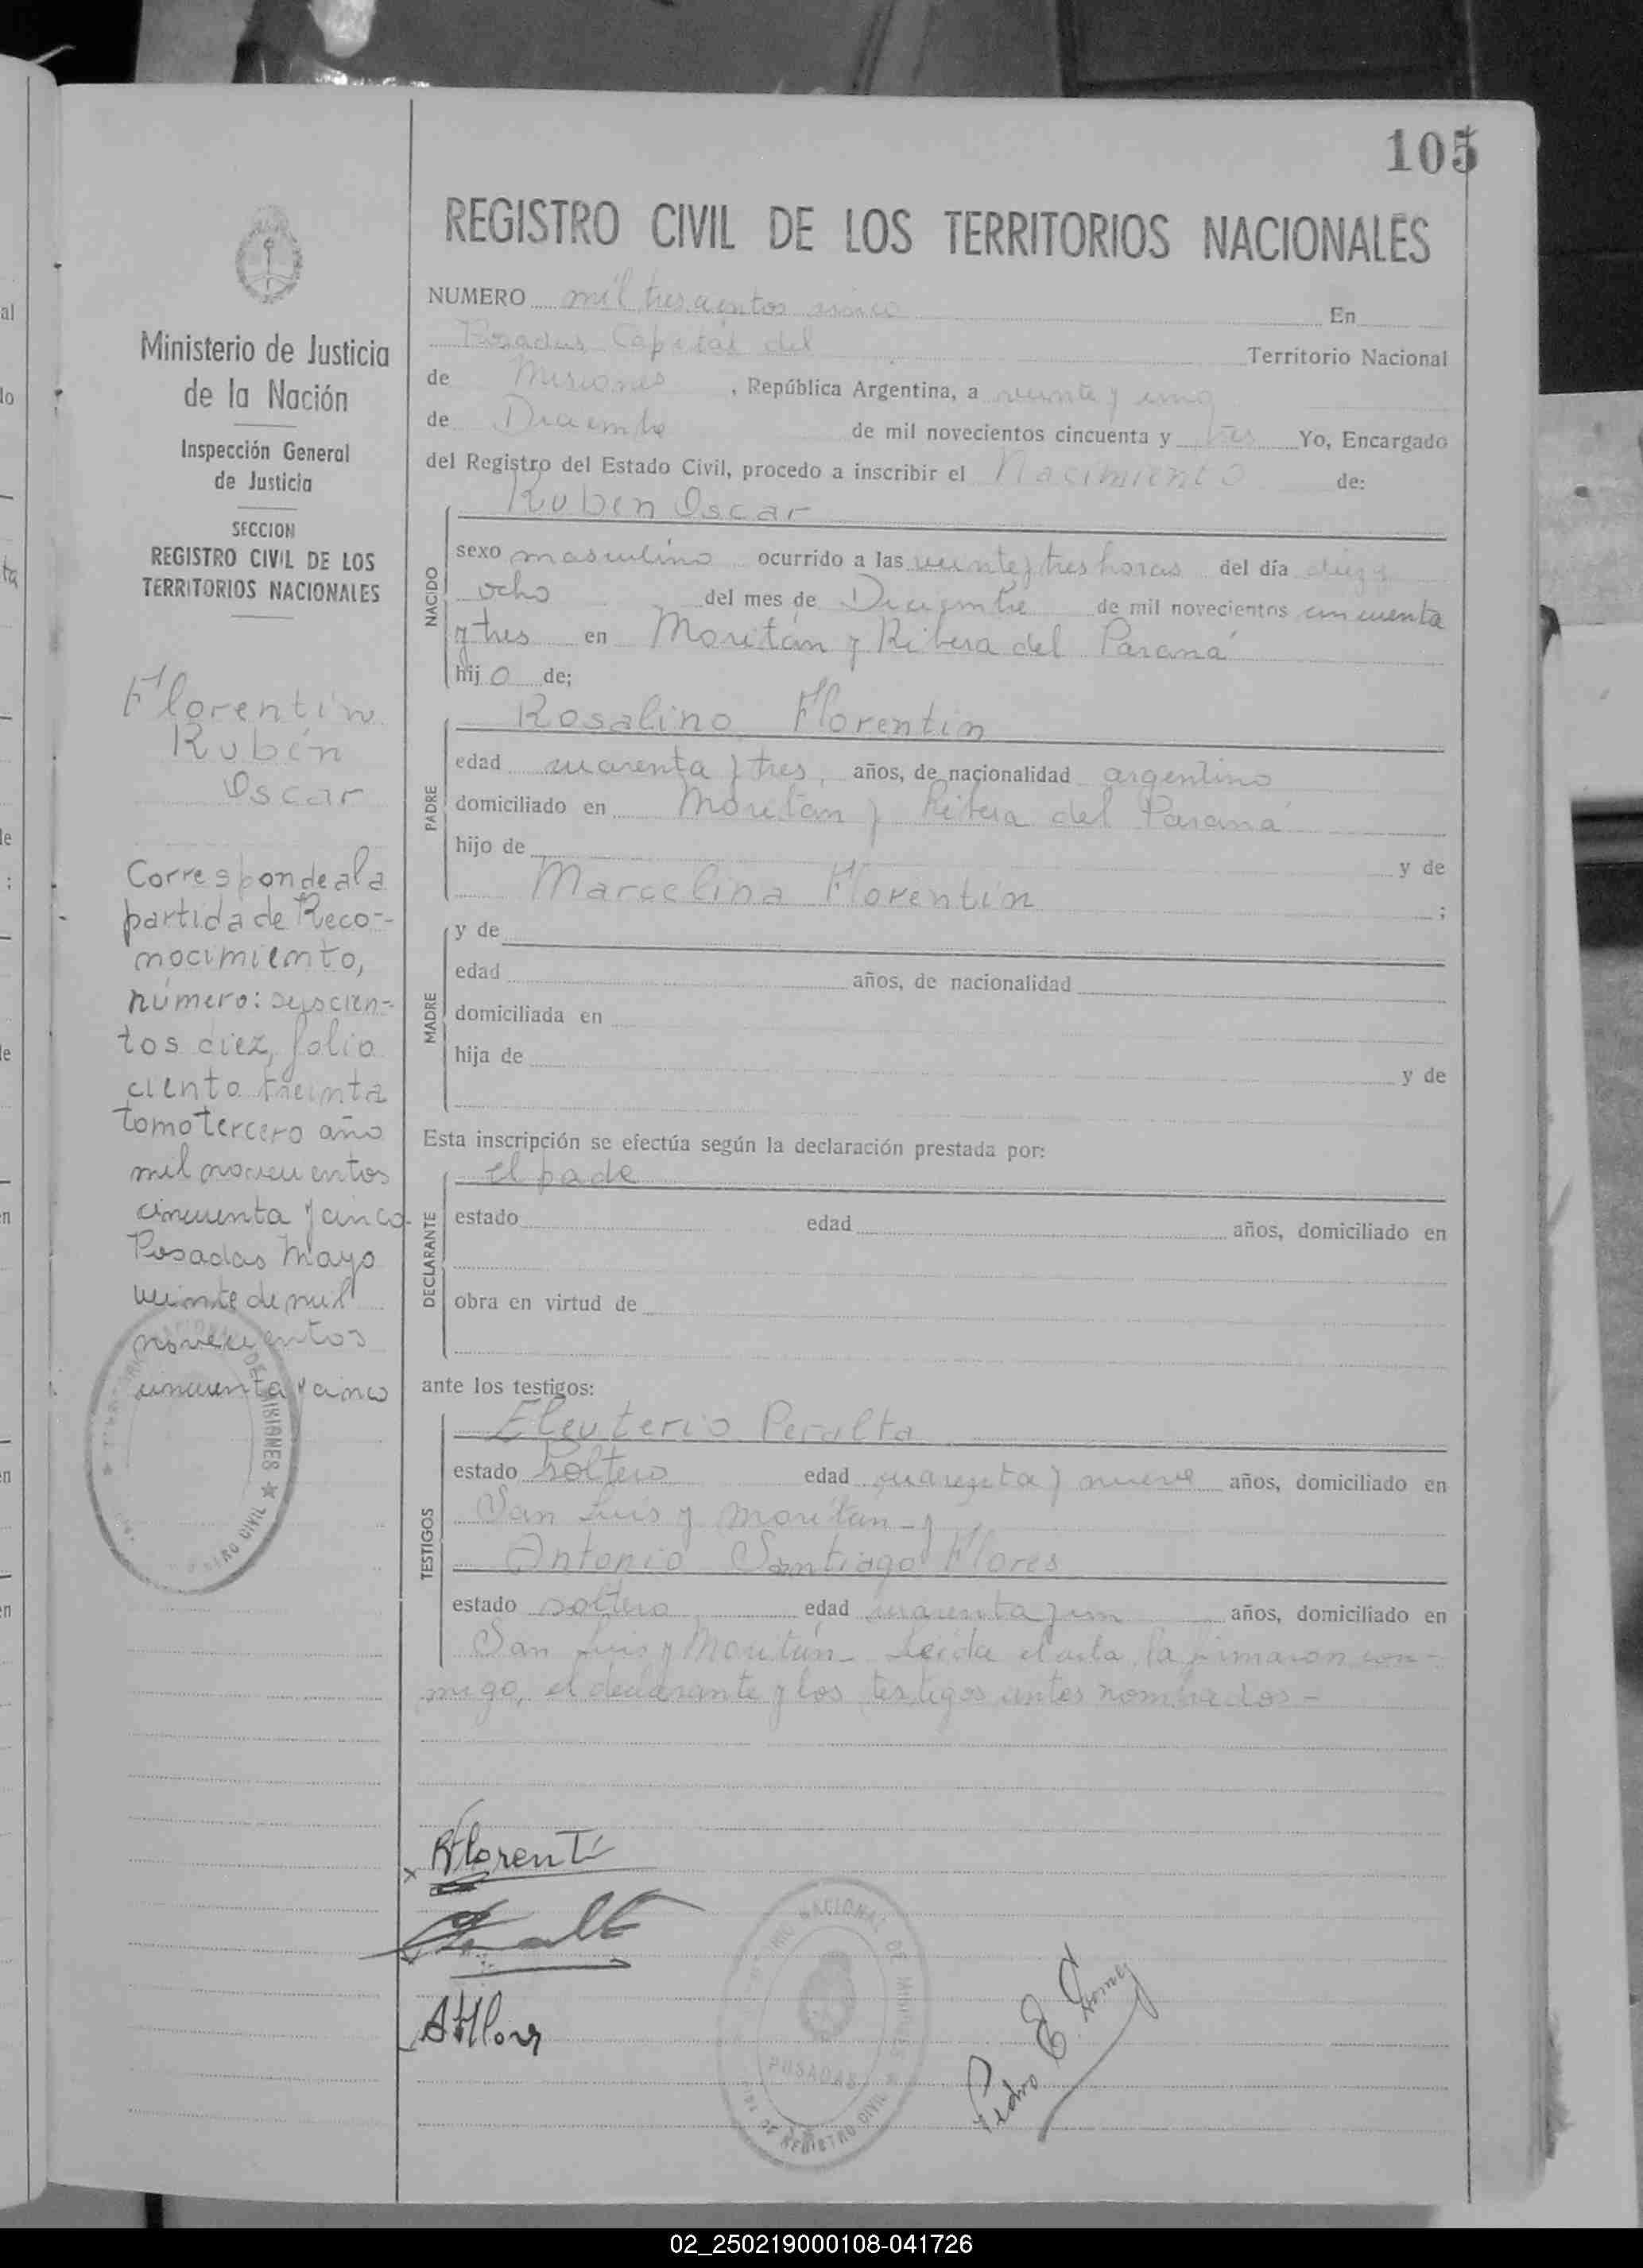 105
REGISTRO CIVIL DE LOS TERRITORIOS NACIONALES
Ministerio de Justicia
de la Nación
Inspección General
de Justicia
SECCION
REGISTRO CIVIL DE LOS
TERRITORIOS NACIONALES
Florentín
Rubén
Oscar
Corresponde a la
partida de Reco-
nocimiento,
número: seiscien-
tos diez, folio
ciento treinta
tomo tercero año
mil novecientos
cincuenta y cinco.
Posadas Mayo
veinte de mil
novecientos
cincuenta y cinco
NUMERO mil trescientos cinco En
Posadas Capital del Territorio Nacional
de Misiones , República Argentina, a veinte y uno
de Diciembre de mil novecientos cincuenta y tres Yo, Encargado
del Registro del Estado Civil, procedo a inscribir el Nacimiento de:
Ruben Oscar
NACIDO
sexo masculino ocurrido a las veinte y tres horas del día diez y
ocho del mes de Diciembre de mil novecientos cincuenta
y tres en Moritán y Ribera del Paraná
hijo de;
Rosalino Florentin
PADRE
edad cuarenta y tres, años, de nacionalidad argentino
domiciliado en Moritán y Ribera del Paraná
hijo de y de
Marcelina Florentín ;
MADRE
y de
edad años, de nacionalidad
domiciliada en
hija de y de
Esta inscripción se efectúa según la declaración prestada por:
el padre
DECLARANTE
estado edad años, domiciliado en
obra en virtud de
ante los testigos:
Eleuterio Peralta
TESTIGOS
estado soltero edad cuarenta y nueve años, domiciliado en
San Luis y Moritán - y
Antonio Santiago Flores
estado soltero edad cuarenta y un años, domiciliado en
San Luis y Moritán - Leída el acta, la firmaron con-
migo, el declarante y los testigos antes nombrados -
RFlorentí
AFlores
NACIONAL DE MISIONES
POSADAS
DE REGISTRO CIVIL
Pedro E. Gomez
02_250219000108-041726